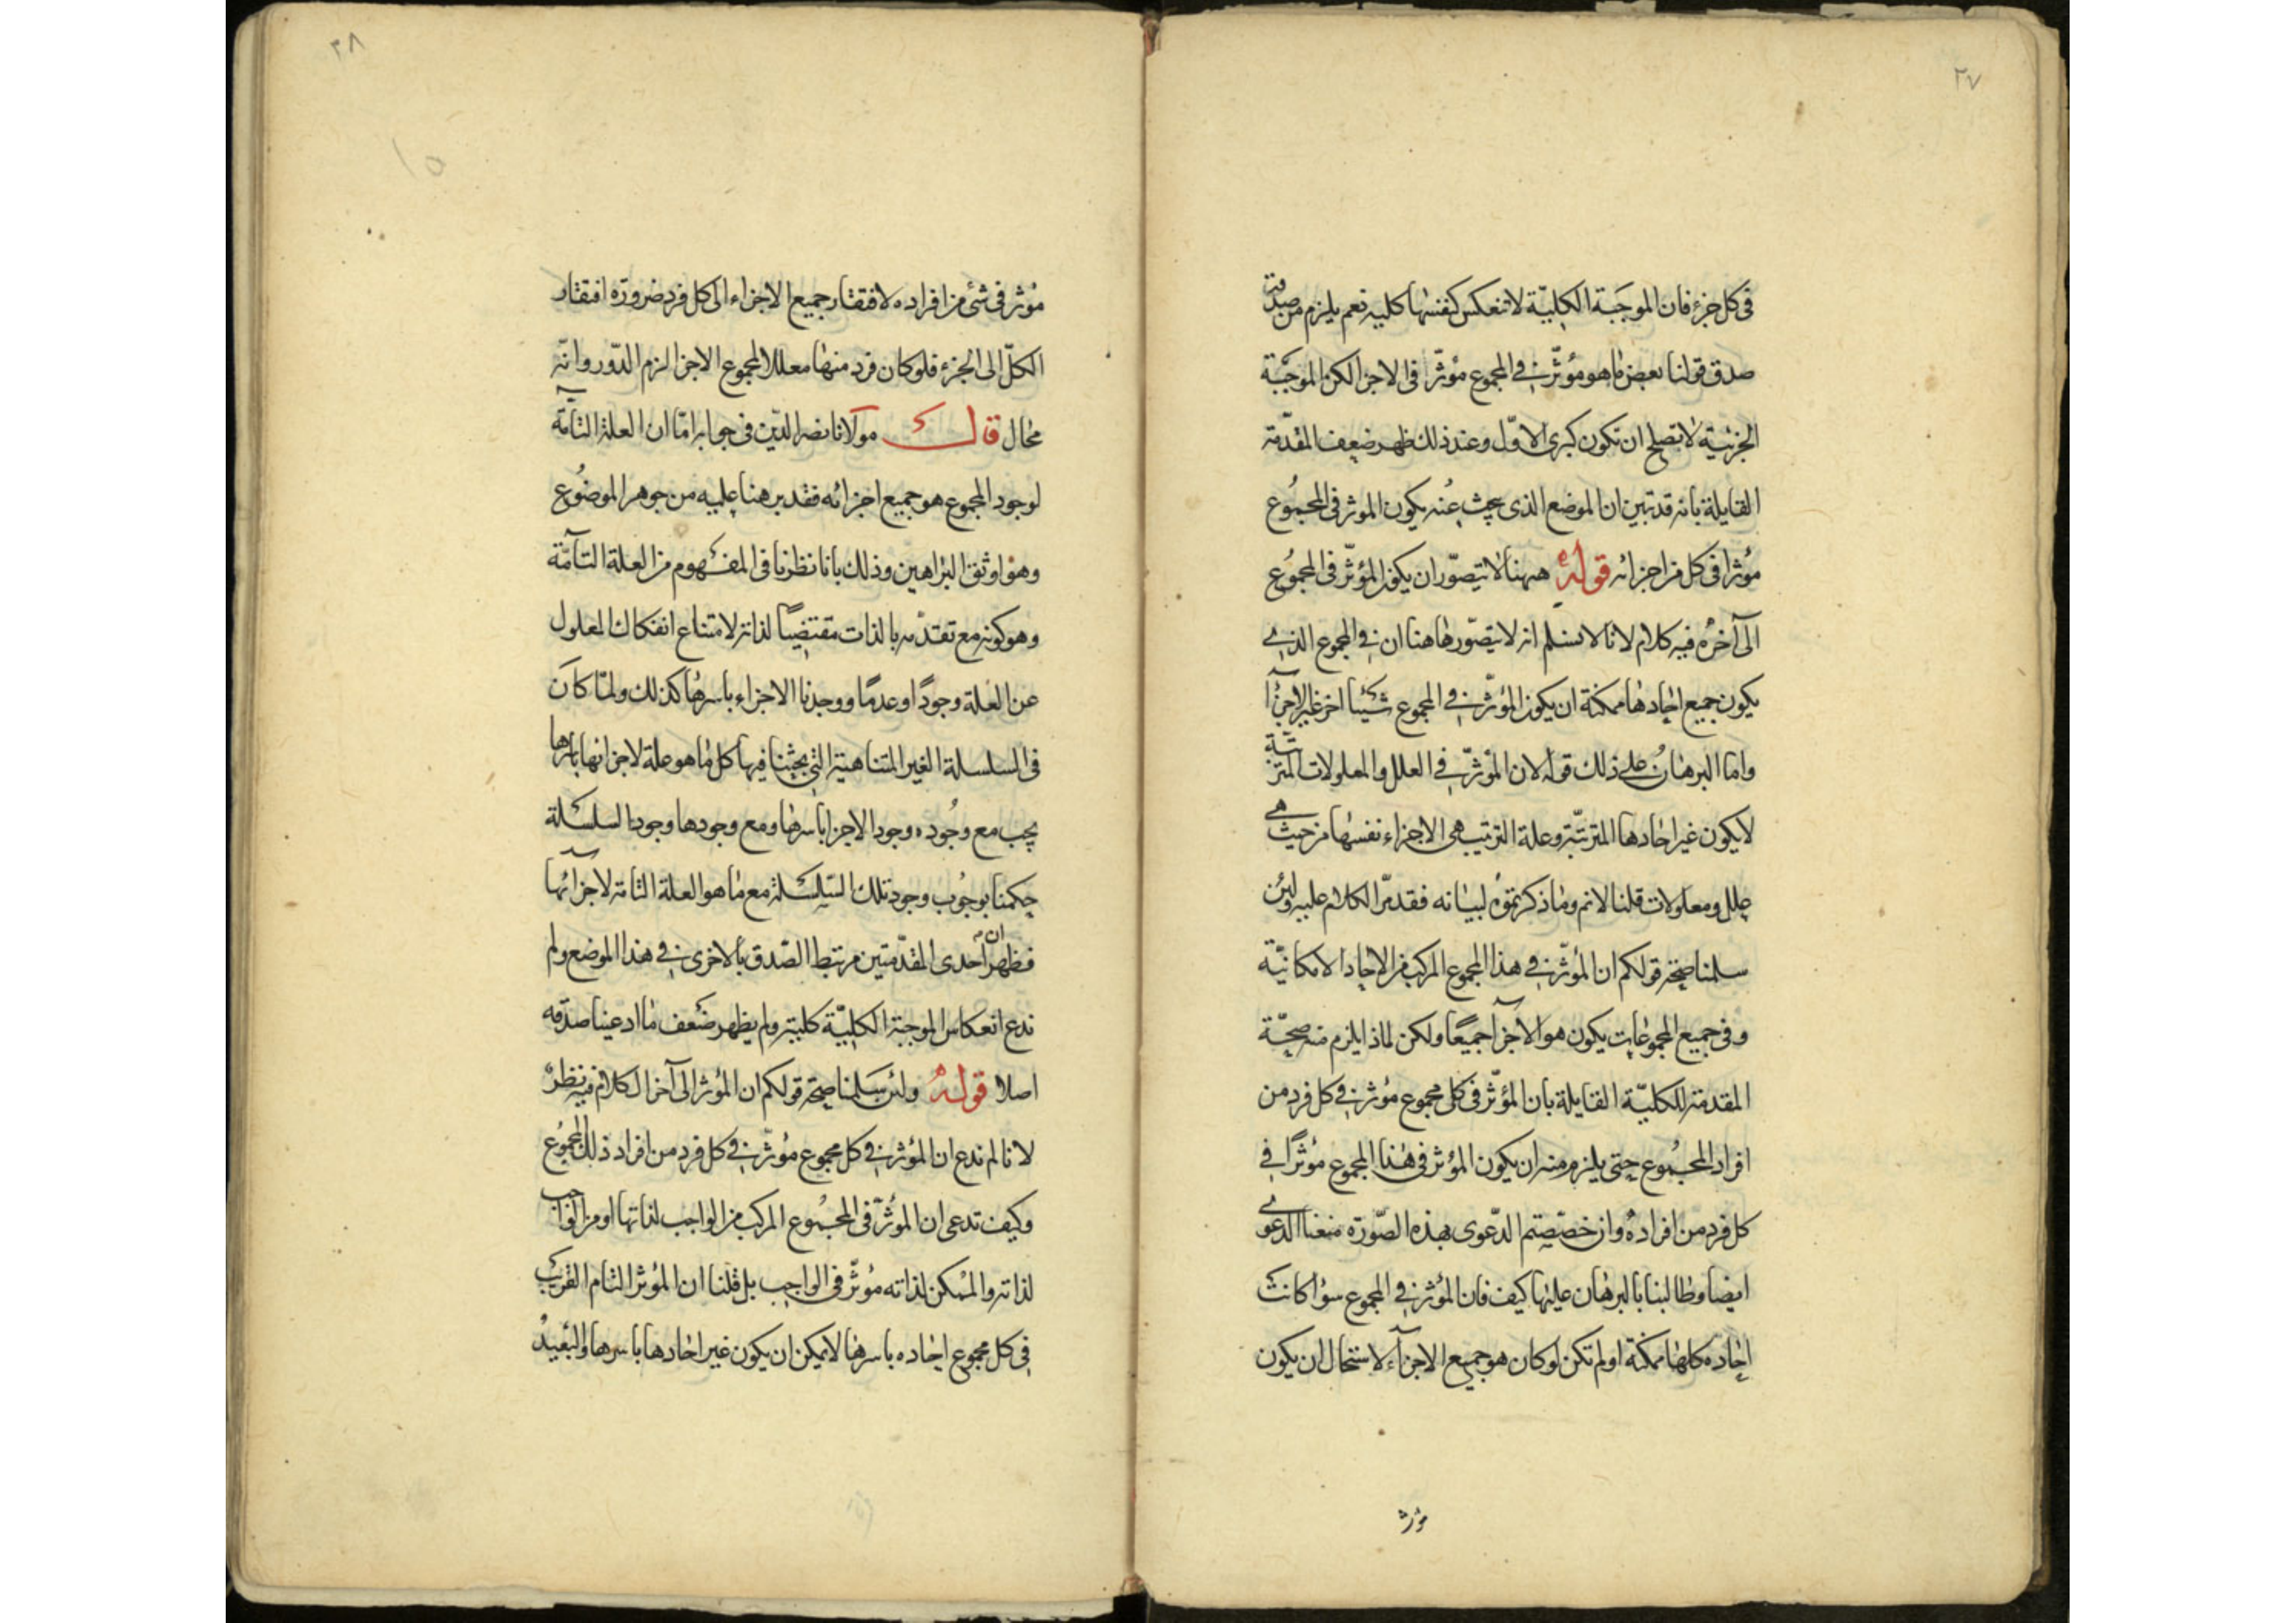 ٢٧
فى كل جزء فان الموجبة الكلية لا تنعكس كنفسها كلية نعم يلزم من صدقه
صدق قولنا بعض ما هو مؤثر فى المجموع مؤثر فى الاجزا لكن الموجبة
الجزئية لا تصلح ان تكون كبرى الاول وعند ذلك ظهر ضعف المقدمة
القايلة بانه قد تبين ان الموضع الذى يبحث عنه يكون الموثر فى المجموع
مؤثرا فى كل من اجزائه قوله ههنا لا يتصور ان يكون المؤثر فى المجموع
الى آخره فيه كلام لانا لا نسلم انه لا يتصور هاهنا ان فى المجموع الذى
يكون جميع احادها ممكنة ان يكون المؤثر فى المجموع شيئا اخر غير الاجزآ
واما البرهان على ذلك قوله لان المؤثر فى العلل والمعلولات المترتبة
لا يكون غير احادها المترتبة وعلة الترتيب هى الاجزاء نفسها من حيث هى
علل ومعلولات قلنا لا نم وما ذكرتموه لبيانه فقد مر الكلام عليه ولئن
سلمنا صحة قولكم ان المؤثر فى هذا المجموع المركب من الاحاد الامكانية
وفى جميع المجموعات يكون هو الاجزآ جميعا ولكن لماذا يلزم منه صحة
المقدمة الكلية القايلة بان المؤثر فى كل مجموع مؤثر فى كل فرد من
افراد المجموع حتى يلزم منه ان يكون المؤثر فى هذا المجموع مؤثرا فى
كل فرد من افراده وان خصصتم الدعوى بهذه الصورة منعنا الدعوى
ايضا وطالبنا بالبرهان عليها كيف فان المؤثر فى المجموع سوا كانت
احاده كلها ممكنة او لم تكن لو كان هو جميع الاجزآء لاستحال ان يكون
مؤثر
٢٨
١٥
مؤثر فى شئ من افراده لافتقار جميع الاجزاء الى كل فرد ضرورة افتقار
الكل الى الجزء فلو كان فرد منها معللا لمجموع الاجزا لزم الدور وانه
محال قال مولانا نصر الدين فى جوابه امّا ان العلة التآمة
لوجود المجموع هو جميع اجزائه فقد برهنا عليه من جوهر الموضوع
وهو اوثق البراهين وذلك بانا نظرنا فى المفهوم من العلة التآمة
وهو كونه مع تقدمه بالذات مقتضيا لذاته لامتناع انفكاك المعلول
عن العلة وجودا وعدما ووجدنا الاجزاء باسرها كذلك ولما كان
فى السلسلة الغير المتناهية التى بحثنا فيها كل ما هو علة لاجزائها باسرها
يجب مع وجوده وجود الاجزا باسرها ومع وجودها وجود السلسلة
حكمنا بوجوب وجود تلك السلسلة مع ما هو العلة التامة لاجزآئها
فظهر ان احدى المقدمتين مرتبط الصدق بالاخرى فى هذا الموضع ولم
ندع انعكاس الموجبة الكلية كلية ولم يظهر ضعف ما ادعينا صدقه
اصلا قوله ولئن سلمنا صحة قولكم ان المؤثر الى آخر الكلام فيه نظر
لانا لم ندع ان المؤثر فى كل مجموع مؤثر فى كل فرد من افراد ذلك المجموع
وكيف ندعى ان المؤثر فى المجموع المركب من الواجب لذاتها او من الواجب
لذاته والممكن لذاته مؤثر فى الواجب بل قلنا ان المؤثر التام القريب
فى كل مجموع احاده باسرها لا يمكن ان يكون غير احادها باسرها والبعيد